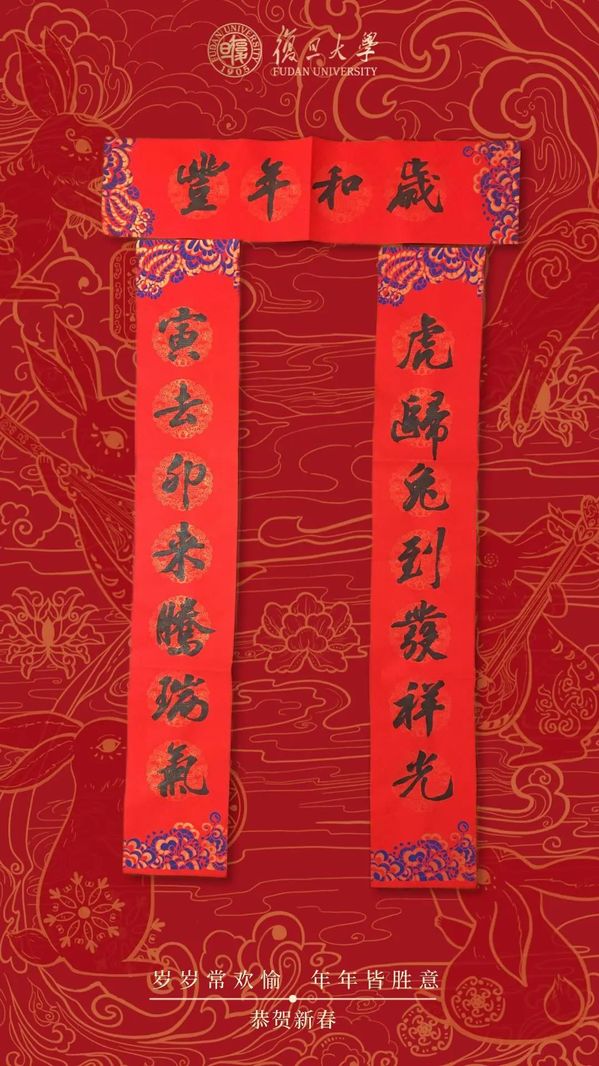 FUDAN UNIVERSITY
復旦
1905
復旦大學
FUDAN UNIVERSITY
歲和年豐
虎歸兔到發祥光
寅去卯来騰瑞氣
岁岁常欢愉 年年皆胜意
恭贺新春